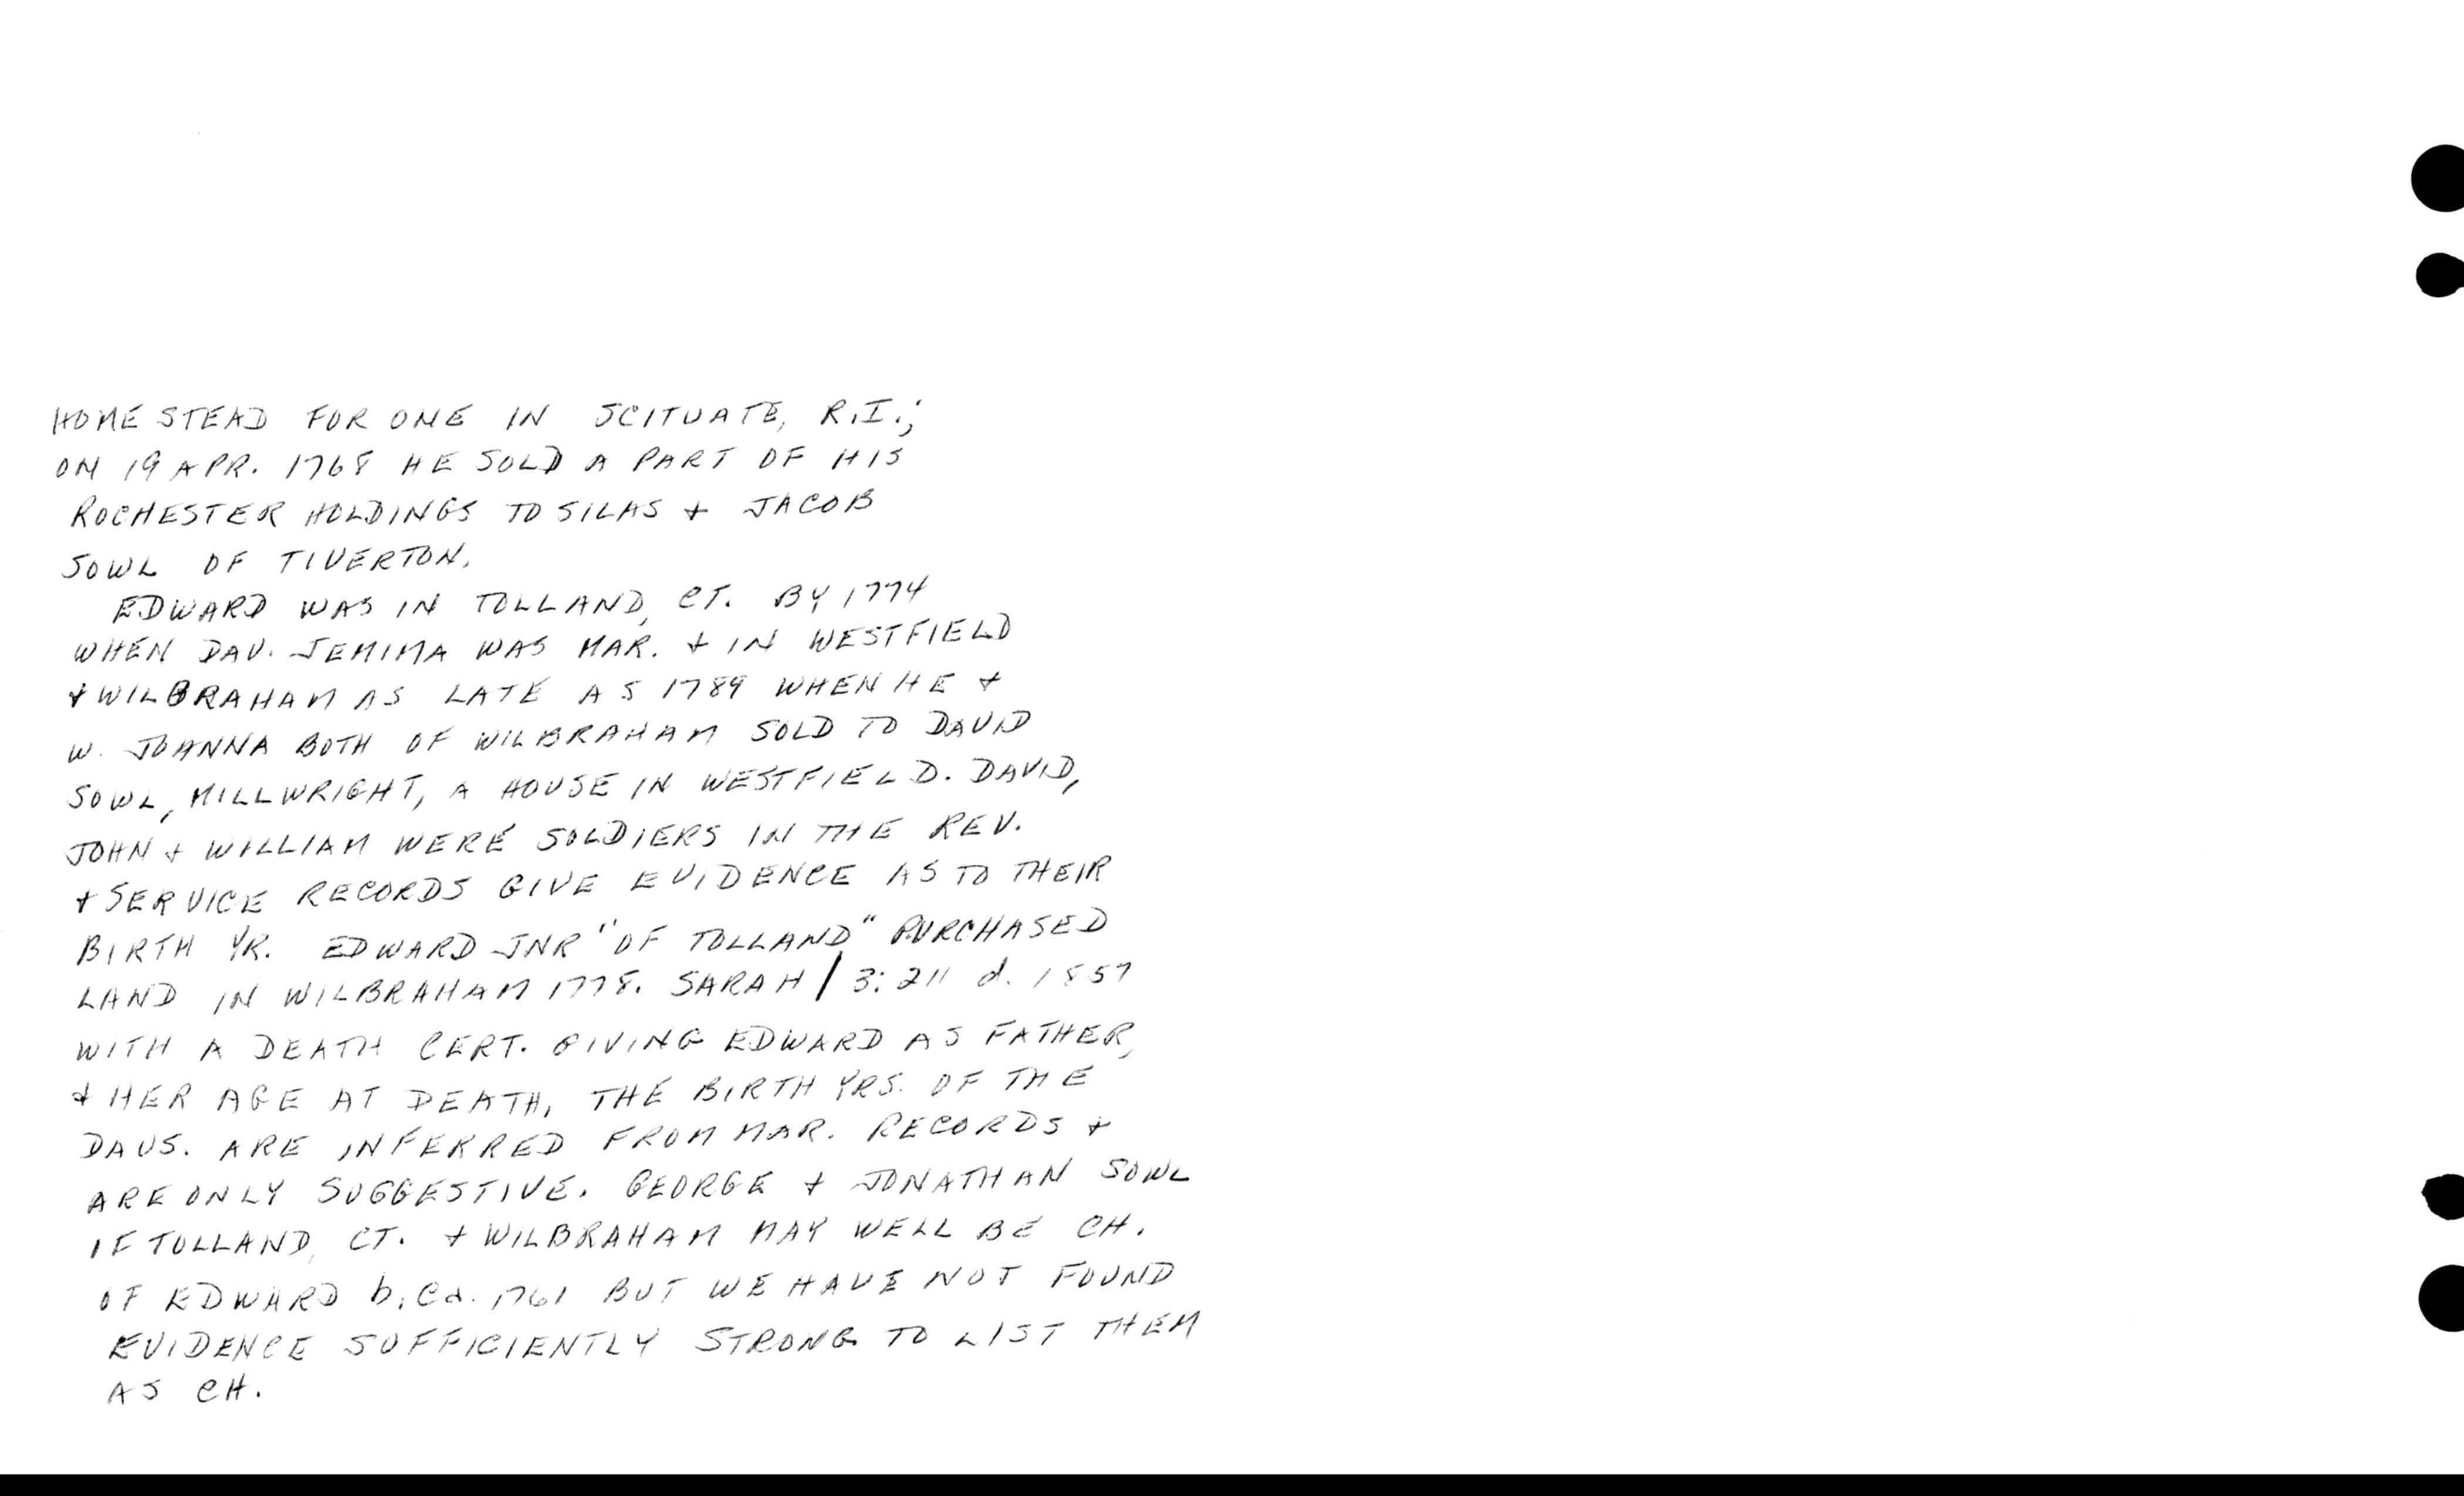 HOMESTEAD FOR ONE IN SCITUATE, R.I.;
ON 19 APR. 1768 HE SOLD A PART OF HIS
ROCHESTER HOLDINGS TO SILAS + JACOB
SOWL OF TIVERTON.
EDWARD WAS IN TOLLAND, CT. BY 1774
WHEN DAU. JEMIMA WAS MAR. + IN WESTFIELD
+ WILBRAHAM AS LATE AS 1789 WHEN HE +
W. JOANNA BOTH OF WILBRAHAM SOLD TO DAVID
SOWL, MILLWRIGHT, A HOUSE IN WESTFIELD. DAVID,
JOHN + WILLIAM WERE SOLDIERS IN THE REV.
+ SERVICE RECORDS GIVE EVIDENCE AS TO THEIR
BIRTH YR. EDWARD JNR "OF TOLLAND" PURCHASED
LAND IN WILBRAHAM 1778. SARAH / 3:211 d. 1857
WITH A DEATH CERT. GIVING EDWARD AS FATHER,
+ HER AGE AT DEATH, THE BIRTH YRS. OF THE
DAUS. ARE INFERRED FROM MAR. RECORDS +
ARE ONLY SUGGESTIVE. GEORGE + JONATHAN SOWL
OF TOLLAND, CT. + WILBRAHAM MAY WELL BE CH.
OF EDWARD b. ca. 1761 BUT WE HAVE NOT FOUND
EVIDENCE SUFFICIENTLY STRONG TO LIST THEM
AS CH.